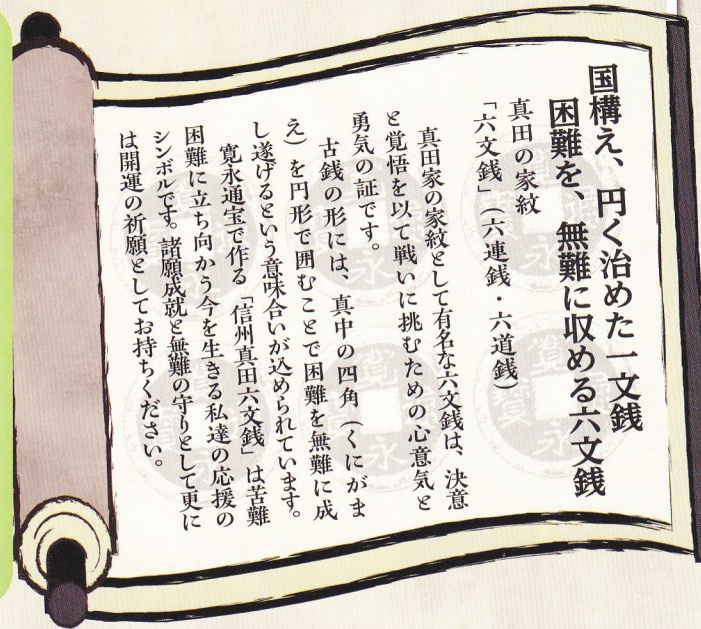 国構え、円く治めた一文銭
困難を、無難に収める六文銭
真田の家紋
「六文銭」（六連銭・六道銭）
真田家の家紋として有名な六文銭は、決意
と覚悟を以て戦いに挑むための心意気と
勇気の証です。
古銭の形には、真中の四角（くにがま
え）を円形で囲むことで困難を無難に成
し遂げるという意味合いが込められています。
寛永通宝で作る「信州真田六文銭」は苦難
困難に立ち向かう今を生きる私達の応援の
シンボルです。諸願成就と無難の守りとして更に
は開運の祈願としてお持ちください。